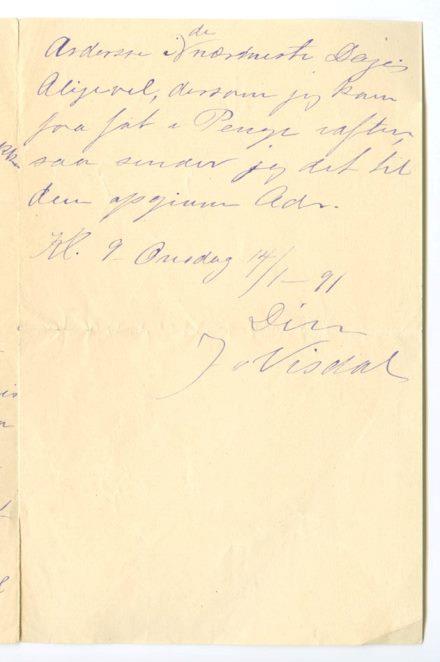 Adresse i de nærdmeste Dage
Aligevel, dersom jeg kan
faa fat i Penge iaften,
saa sender jeg det til
den opgivne Adr.
Kl. 9 - Onsdag 14/1 - 91
Din
J Visdal